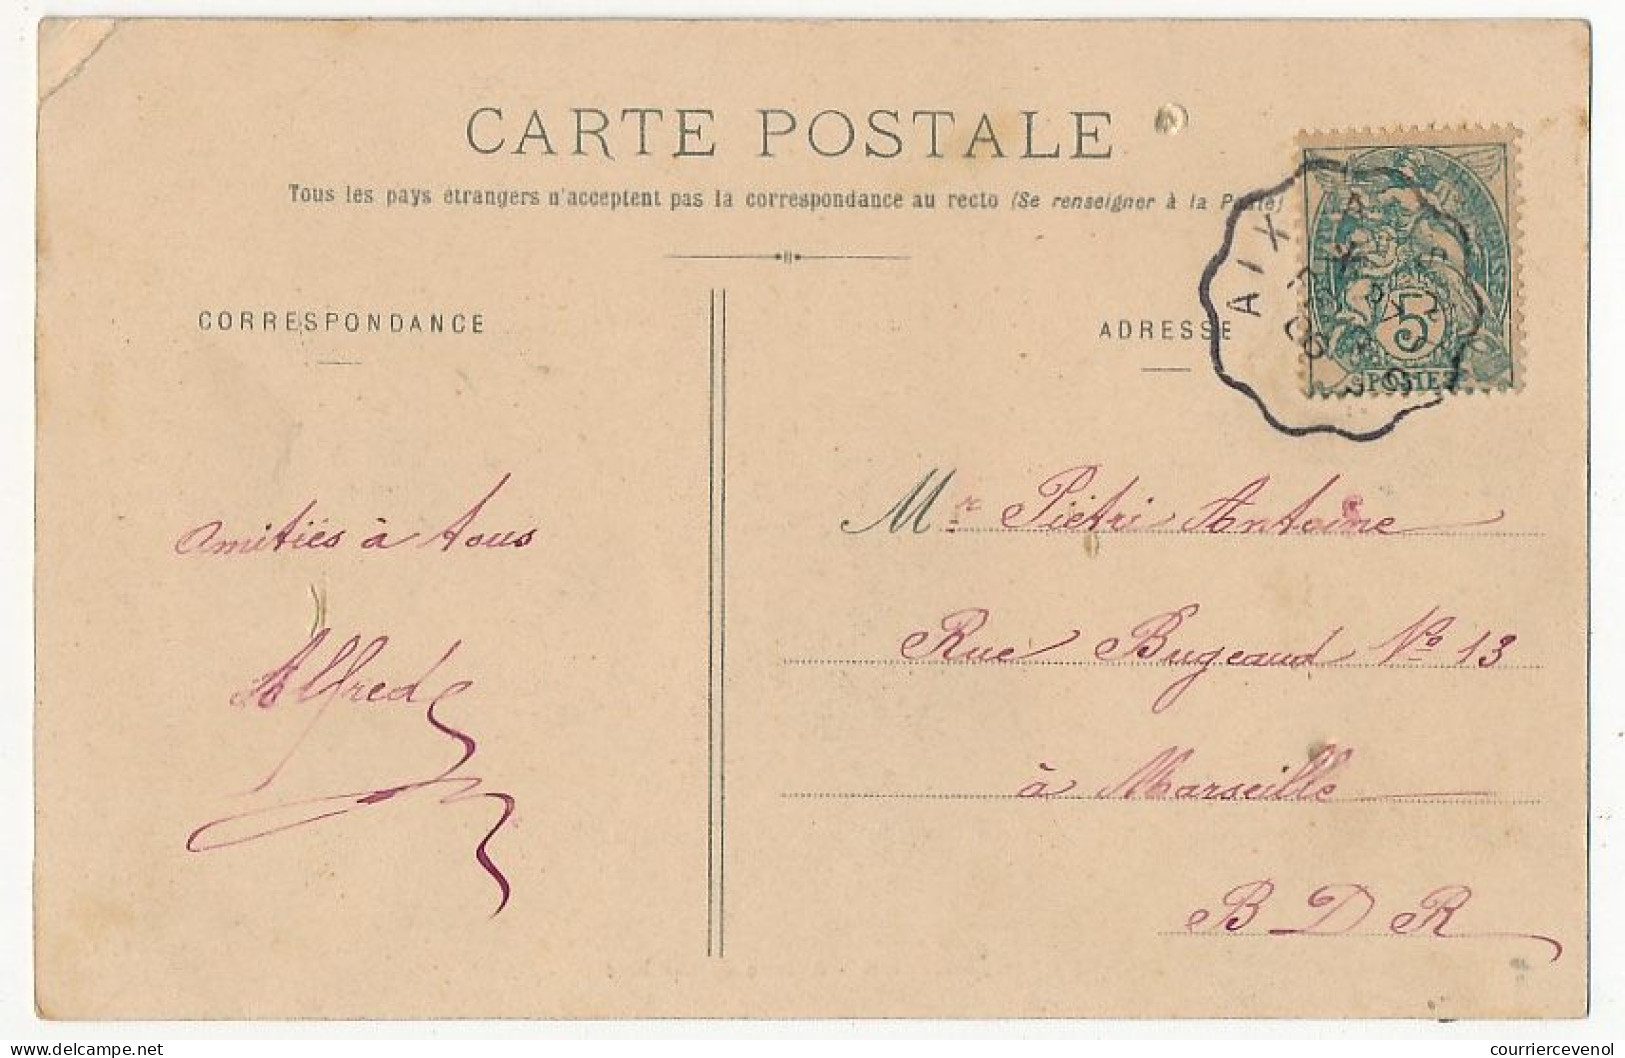 CARTE POSTALE
Tous les pays étrangers n'acceptent pas la correspondance au recto (Se renseigner à la Poste)
CORRESPONDANCE
ADRESSE
AIX
5
POSTES
Amitiés à tous
Alfred
Mr Piétri Antoine
Rue Bugeaud No 13
à Marseille
B D R
www.delcampe.net
courriercevenol